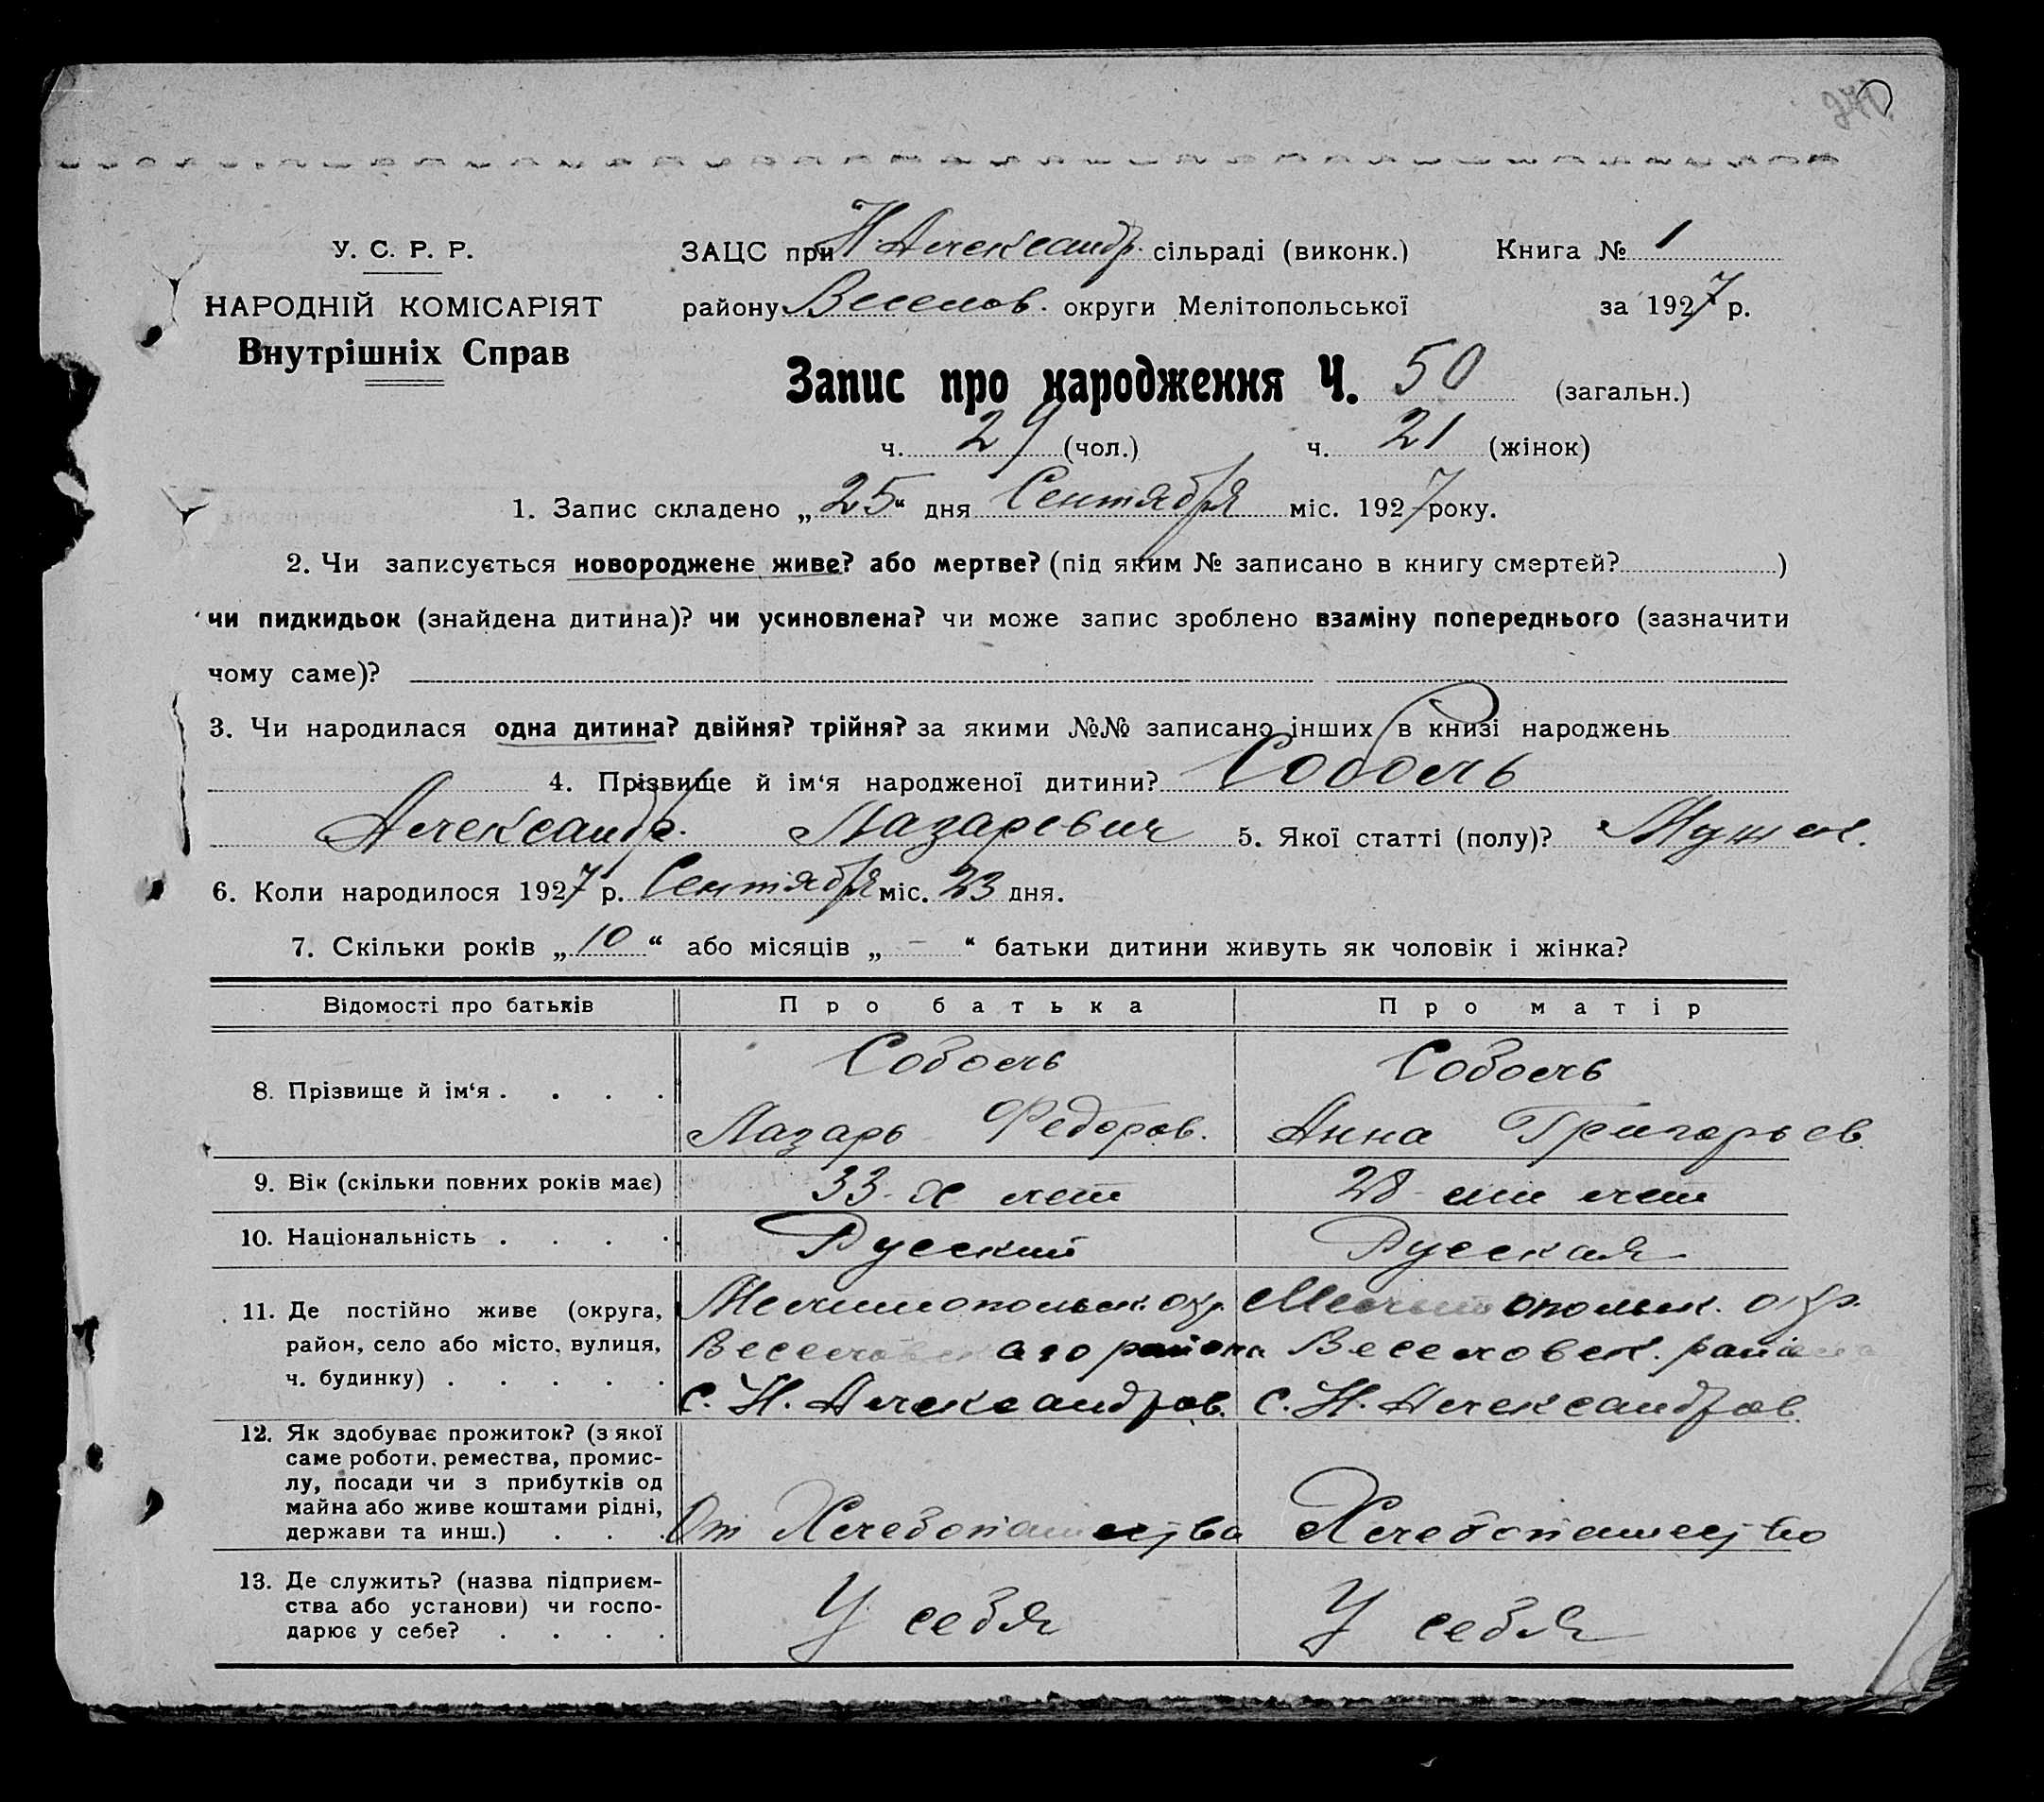 У. С. Р. Р.
НАРОДНІЙ КОМІСАРІЯТ
Внутрішніх Справ
ЗАЦС при Н Александр. сільраді (виконк.) Книга № 1
району Веселов. округи Мелітопольської за 1927 р.
Запис про народження Ч. 50 (загальн.)
ч. 29 (чол.) ч. 21 (жінок)
1. Запис складено „25“ дня Сентября міс. 1927 року.
2. Чи записується новороджене живе? або мертве? (під яким № записано в книгу смертей? )
чи пидкидьок (знайдена дитина)? чи усиновлена? чи може запис зроблено взаміну попереднього (зазначити
чому саме)?
3. Чи народилася одна дитина? двійня? трійня? за якими №№ записано інших в книзі народжень
4. Прізвище й ім‘я народженої дитини? Соболь
Александр. Лазаревич 5. Якої статті (полу)? Мужск.
6. Коли народилося 1927 р. Сентября міс. 23 дня.
7. Скільки років „10“ або місяців „-“ батьки дитини живуть як чоловік і жінка?
Відомості про батьків Про батька Про матір
8. Прізвище й ім‘я . . . . Соболь Лазарь Федоров. Соболь Анна Григорьев.
9. Вік (скільки повних років має) 33-х лет 28-ми лет
10. Національність . . . . Русский Русская
11. Де постійно живе (округа, Мелитопольск. окр. Мелитопольск. окр.
район, село або місто, вулиця, Веселовскаго района Веселовск. района
ч. будинку) . . . . . с. Н. Александров. с. Н. Александров.
12. Як здобуває прожиток? (з якої
саме роботи, ремества, промис-
лу, посади чи з прибутків од
майна або живе коштами рідні,
держави та инш.) . . . От Хлебопашества Хлебопашество
13. Де служить? (назва підприєм-
ства або установи) чи госпо-
дарює у себе? . . . . У себя У себя